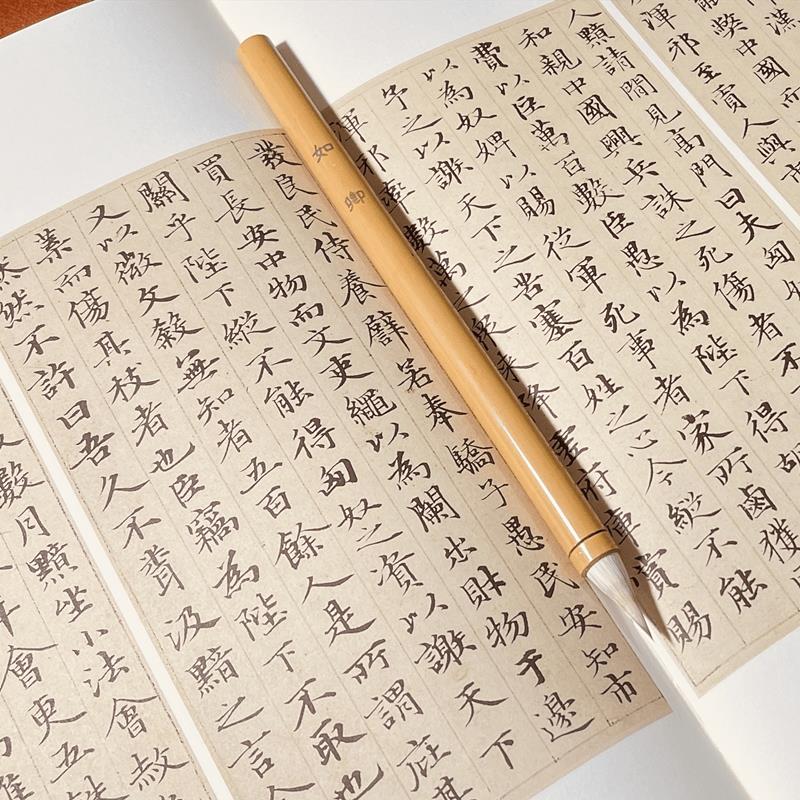 漢
而市
弊中國而
渾邪至賈人與市
人黯請閒見高門曰夫匈
和親中國興兵誅之死傷者不
費以臣萬百數臣愚以為陛下得胡
以為奴婢以賜從軍死事者家所鹵獲
予之以謝天下之苦塞百姓之心今縱不能
渾邪率數萬之衆來降虛府庫賞賜
發良民侍養譬若奉驕子愚民安知市
買長安中物而文吏繩以為闌出財物于邊
關乎陛下縱不能得匈奴之資以謝天下
又以微文殺無知者五百餘人是所謂庇其
葉而傷其枝者也臣竊為陛下不取也
然不許曰吾久不聞汲黯之言
數月黯坐小法會赦
年會更五銖
如卿